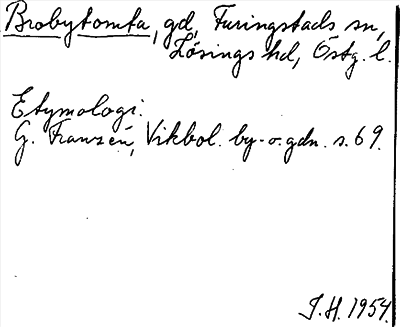 Brobytomta, gd, Furingstads sn,
Lösings hd, Östg. l.
Etymologi:
G. Franzén, Vikbol. by- o. gdn. s. 69.
J.H. 1954.